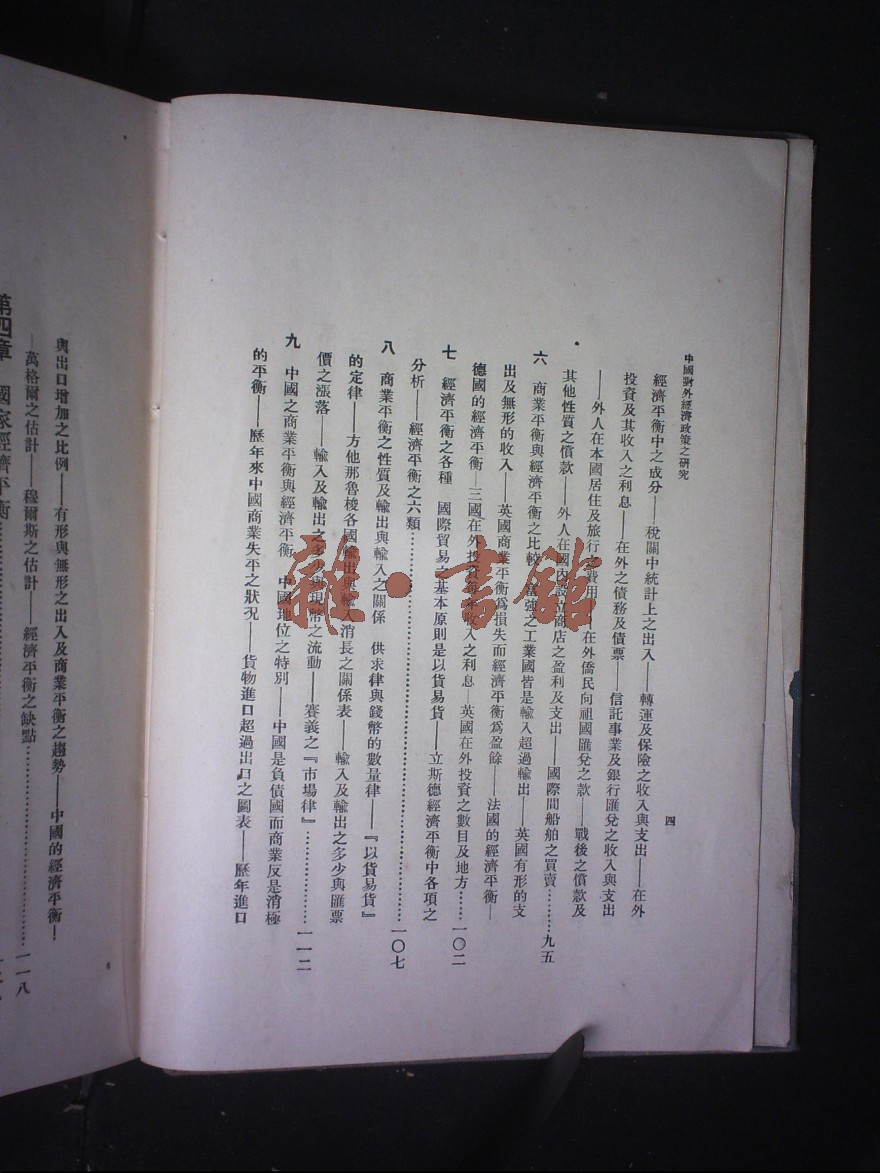 中國對外經濟政策之研究
四
經濟平衡中之成分——稅關中統計上之出入——轉運及保險之收入與支出——在外
投資及其收入之利息——在外之債務及債票——信託事業及銀行匯兌之收入與支出
——外人在本國居住及旅行之費用 在外僑民向祖國匯兌之款——戰後之償款及
其他性質之償款——外人在國內設立商店之盈利及支出——國際間船舶之買賣………九五
六 商業平衡與經濟平衡之比較 富強之工業國皆是輸入超過輸出——英國有形的支
出及無形的收入——英國商業平衡為損失而經濟平衡為盈餘——法國的經濟平衡—
德國的經濟平衡—三國在外投資每年收入之利息—英國在外投資之數目及地方………一〇二
七 經濟平衡之各種 國際貿易之基本原則是以貨易貨——立斯德經濟平衡中各項之
分析——經濟平衡之六類………一〇七
八 商業平衡之性質及輸出與輸入之關係 供求律與錢幣的數量律——『以貨易貨』
的定律——方他那魯梭各國輸出與輸入消長之關係表——輸入及輸出之多少與匯票
價之漲落——輸入及輸出之多少與現幣之流動——賽義之『市場律』………一一二
九 中國之商業平衡與經濟平衡 中國地位之特別——中國是負債國而商業反是消極
的平衡——歷年來中國商業失平之狀況——貨物進口超過出口之圖表——歷年進口
與出口增加之比例——有形與無形之出入及商業平衡之趨勢——中國的經濟平衡—
—萬格爾之估計——穆爾斯之估計——經濟平衡之缺點………一一八
第四章 國家經濟平衡………
雜·書館